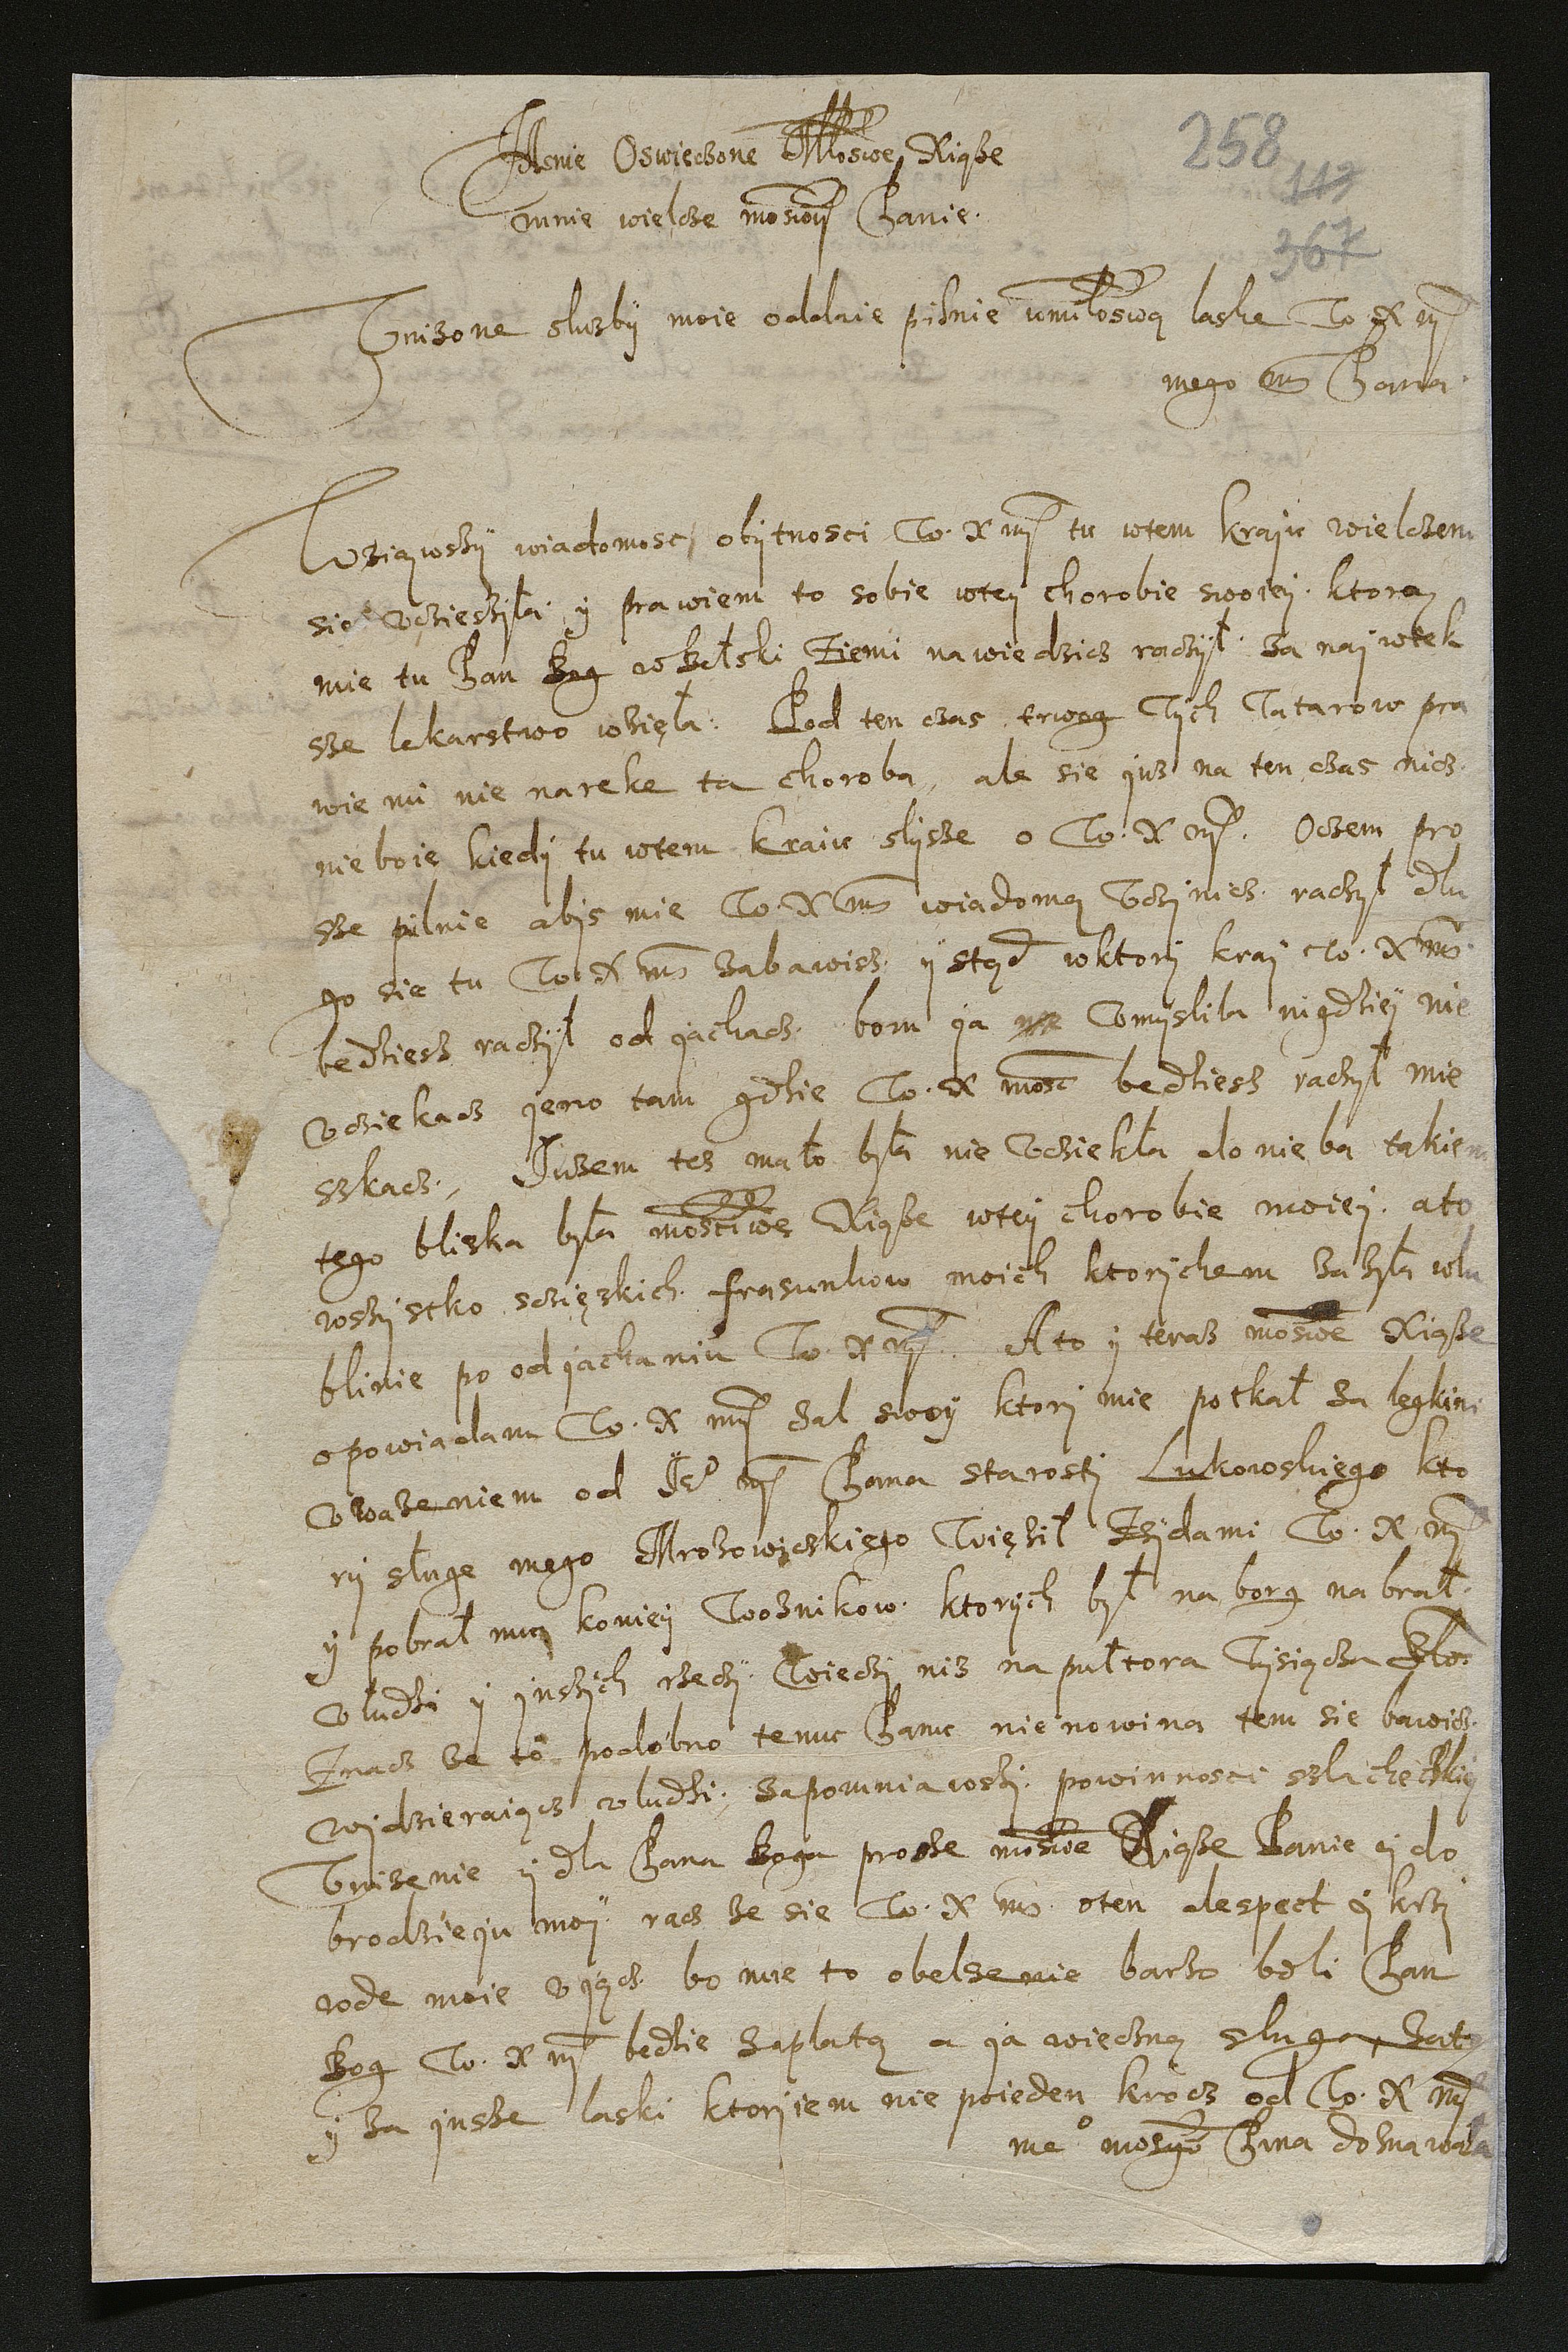 Jasnie Oswieczone Mosciwe Xiąże
mnie wielcze mosciwy Panie.
258
113
367
Unizone sluzby moie oddaie pilnie w miłosciwą laske W. X mci
mego m Pana.
Wziąwszy wiadomosc o bytnosci W. X mci tu wtem kraju wielczem
sie ucziesyła y prawiem to sobie wtey chorobie swoiey. ktorą
mie tu Pan Bog w Belski Ziemi nawiedzicz raczył za naiwtek
sze lekarstwo wzięła. Pod ten czas trwog Tych Tatarow pra
wie mi nie na reke ta choroba, ale sie iuz na ten czas nicz
nieboie kiedy tu wtem kraiu slysze o W. X mci. Oczem pro
sze pilnie abys mie W. X m wiadomą Uczynicz raczył dlu
go sie tu W. X m zabawisz y stąd wktory kraj W. X m
bedziesz raczył odjachacz. bom ja Umyslila nigdziey nie
ucziekacz jeno tam gdzie W. X mosc bedziesz raczył mie
szkacz. Juzem tez mało była nie Ucziekła do nieba takiem
tego bliska była mosciwe Xiąże wtey chorobie moiey. ato
wszystko sczięzkich frasunkow moich ktorychem zazyła wlu
blinie po odjachaniu W. X mci. A to y teraz mosciwe Xiąże
opowiadam W. X mci zal swoy ktory mie potkał za legkim
Uwazeniem od Je mci Pana starosty Lukowskiego kto
ry sługe mego Mrozowiczkiego Więził Zydami W. X mci
y pobrał mu koniey Woznikow ktorych był na borg nabrał.
U ludzi y inszych rzeczy. Wieczy niz na pułtora Tysiącza zło
Znacz ze to podobno temu Panu nie nowina tem sie bawicz.
wydzieraiącz u ludzi, zapomniawszy powinnosci szlacheczkiey
Unizenie y dla Pana Boga prosze mosciwe Xiąże Panie y do
brodzieju moy. racz ze sie W. X m. o ten despect y krzy
wde moie ująćz bo mie to obelzenie barzo boli Pan
Bog W. X mci bedzie zaplatą a ja wieczną slugą, zatę
y za insze laski ktorjem nie pojeden krocz od W. X mci
me° mosgo Pana doznawała